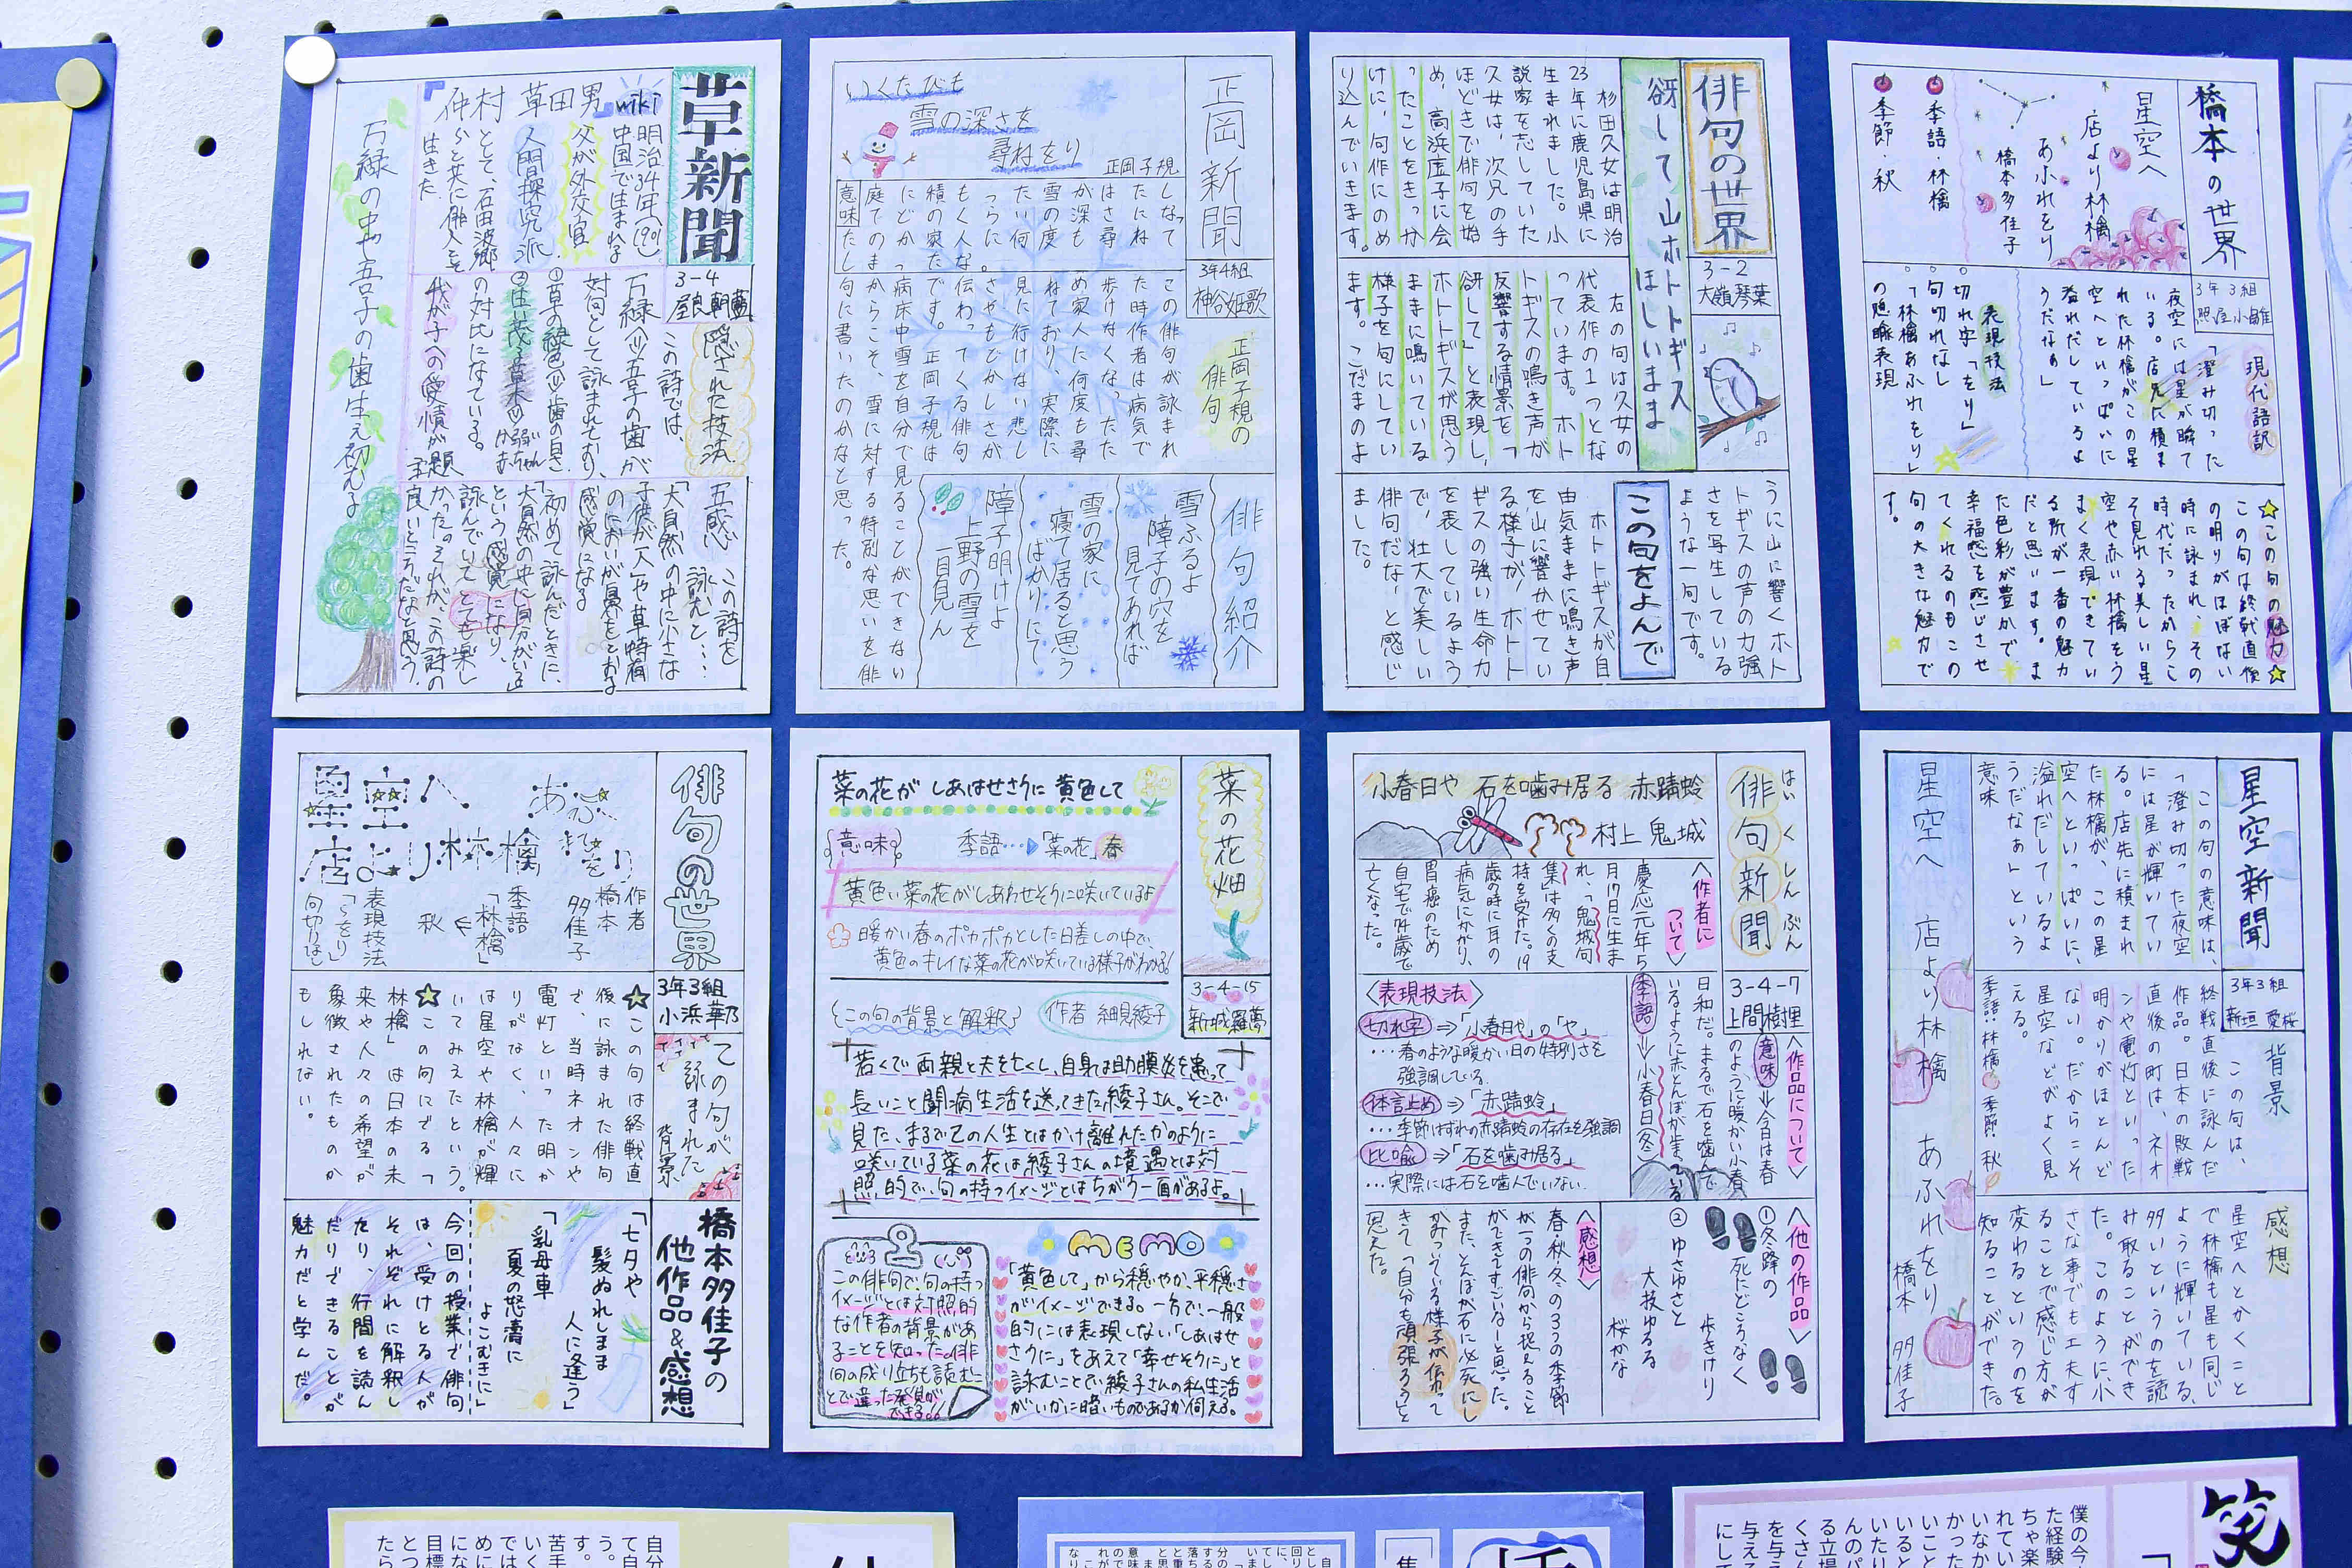 草新聞
3-4
屋良朝藍
仲村 草田男 wiki
明治34年(1901)
中国で生まれる
父が外交官
人間探究派
として、石田波郷
らと共に俳人とを
生きた
万緑の中や吾子の歯生え初むる
隠された技法
この詩では、
万緑⇔吾子の歯が
対句として詠まれており、
①草の緑色⇔歯の白さ
②生い茂る草木⇔か弱い赤ちゃん
の対比になっている。
我が子への愛情が主題
五感
この詩を
詠むと…
「大自然の中に小さな
子供が一人」や草特有
のにおいが鼻をとおる
感覚になる
「初めて詠んだときに、
大自然の中に自分がいる」
という感覚になり、
詠んでいてとても楽し
かった。それが、この詩の
良いところだなと思う。
正岡新聞
3年4組
神谷姫歌
いくたびも
雪の深さを
尋ねをり
正岡子規
正岡子規の
俳句
意味
この俳句が詠まれ
た時作者は病気で
歩けなくなったた
め家人に何度も尋
ねており、実際に
見に行けない悲し
さやもどかしさが
伝わってくる俳句
です。正岡子規は
病床中雪を自分で見ることができない
からこそ、雪に対する特別な思いを俳
句に書いたのかなと思った。
俳句紹介
雪ふるよ
障子の穴を
見てあれば
雪の家に
寝て居ると思う
ばかりにて
障子明けよ
上野の雪を
一目見ん
俳句の世界
3-2
大嶺琴葉
谺して山ホトトギス
ほしいまま
杉田久女は明治
23年に鹿児島県に
生まれました。小
説家を志していた
久女は、次兄の手
ほどきで俳句を始
め、高浜虚子に会
ったことをきっか
けに、句作にのめ
り込んでいきます。
右の句は久女の
代表作の1つとな
っています。ホト
トギスの鳴き声が
反響する情景を「
谺して」と表現し、
ホトトギスが思う
ままに鳴いている
様子を句にしてい
ます。こだまのよ
うに山に響くホト
トギスの声の力強
さを写生している
ような一句です。
この句をよんで
ホトトギスが自
由気ままに鳴き声
を山に響かせてい
る様子が、ホトト
ギスの強い生命力
を表しているよう
で、壮大で美しい
俳句だな、と感じ
ました。
橋本の世界
3年3組
照屋小雛
星空へ
店より林檎
あふれをり
橋本多佳子
季語・林檎
季節・秋
現代語訳
「澄み切った
夜空には星が瞬て
いる。店先に積ま
れた林檎がこの星
空へといっぱいに
溢れだしているよ
うだなぁ」
表現技法
切れ字「をり」
句切れなし
「林檎あふれをり」
の隠喩表現
☆この句の魅力☆
この句は終戦直後
の明りがほぼない
時に詠まれ、その
時代だったからこ
そ見れる美しい星
空や赤い林檎をう
まく表現できてい
る所が一番の魅力
だと思います。ま
た色彩が豊かで
幸福感を感じさせ
てくれるのもこの
句の大きな魅力で
す。
俳句の世界
3年3組
小浜華乃
星空へ
店より林檎
あふれをり
作者
橋本
多佳子
季語
「林檎」
秋
表現技法
「~をり」
句切りなし
この句が
詠まれた
背景
☆この句は終戦直
後に詠まれた俳句
で、当時ネオンや
電灯といった明か
りがなく、人々に
は星空や林檎が輝
いてみえたという。
☆この句にでる「
林檎」は日本の未
来や人々の希望が
象徴されたものか
もしれない。
橋本多佳子の
他作品&感想
「七夕や
髪ぬれしまま
人に逢う」
「乳母車
夏の怒濤に
よこむきに」
今回の授業で俳句
は、受けとる人が
それぞれに解釈し
たり、行間を読ん
だりできることが
魅力だと学んだ。
菜の花畑
3-4-15
新城羅夢
菜の花が しあはせさうに 黄色して
意味
季語…▶「菜の花」春
黄色い菜の花がしあわせそうに咲いているよ
暖かい春のポカポカとした日差しの中で、
黄色のキレイな菜の花が咲いている様子がわかる!
この句の背景と解釈
作者 細見綾子
若くで両親と夫を亡くし、自身は肋膜炎を患って
長いこと闘病生活を送ってきた綾子さん。そこで
見た、まるで己の人生とはかけ離れたかのように
咲いている菜の花は綾子さんの境遇とは対
照的で、句の持つイメージとはちがう一面があるよ。
MEMO
この俳句で、句の持つ
イメージとは対照的
な作者の背景があ
ることを知った。俳
句の成り立ちも読むこ
とで違った発見が
できる!!
「黄色して」から穏やか、平穏さ
がイメージできる。一方で、一般
的には表現しない「しあはせ
さうに」をあえて「幸せそうに」と
詠むことで綾子さんの私生活
がいかに暗いものであるか伺える。
はいくしんぶん
俳句新聞
3-4-7
上間樹里
小春日や 石を噛み居る 赤蜻蛉
村上 鬼城
<作者に
ついて>
慶応元年5
月17日に生ま
れ、「鬼城句
集」は多くの支
持を受けた。19
歳の時に耳の
病気にかかり、
胃癌のため
自宅で74歳で
亡くなった。
<作品について>
意味⇒今日は春
のように暖かい小春
日和だ。まるで石を噛んで
いるように赤とんぼが止まっている
季語⇒小春日(冬)
<表現技法>
切れ字⇒「小春日や」の「や」
…春のような暖かい日の特別さを
強調している。
体言止め⇒「赤蜻蛉」
…季節はずれの赤蜻蛉の存在を強調
比喩⇒「石を噛み居る」
…実際には石を噛んでいない。
<他の作品>
①冬蜂の
死にどころなく
歩きけり
②ゆさゆさと
大枝ゆるる
桜かな
<感想>
春・秋・冬の3つの季節
が一つの俳句から捉えること
ができてすごいなーと思った。
また、とんぼが石に必死にし
がみついている様子が伝わって
きて、「自分も頑張ろう」と
思えた。
星空新聞
3年3組
新垣 愛桜
星空へ 店より林檎 あふれをり
橋本 多佳子
この句の意味は、
「澄み切った夜空
には星が輝いてい
る。店先に積まれ
た林檎が、この星
空へといっぱいに、
溢れだしているよ
うだなぁ」という
意味
季語・林檎 季節・秋
背景
この句は、
終戦直後に詠んだ
作品。日本の敗戦
直後の町は、ネオ
ンや電灯といった
明かりがほとんど
ない。だからこそ
星空などがよく見
える。
感想
星空へとかくこと
で林檎も星も同じ
ように輝いている、
多いというのを読
み取ることができ
た。このように、小
さな事でも工夫す
ることで感じ方が
変わるというのを
知ることができた。
笑
僕の今